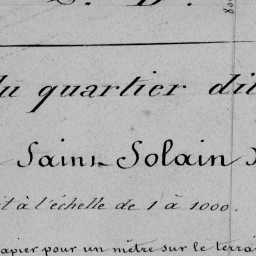 du quartier dit
Saint-Solain
à l'échelle de 1 à 1000.
papier pour un mètre sur le terrai